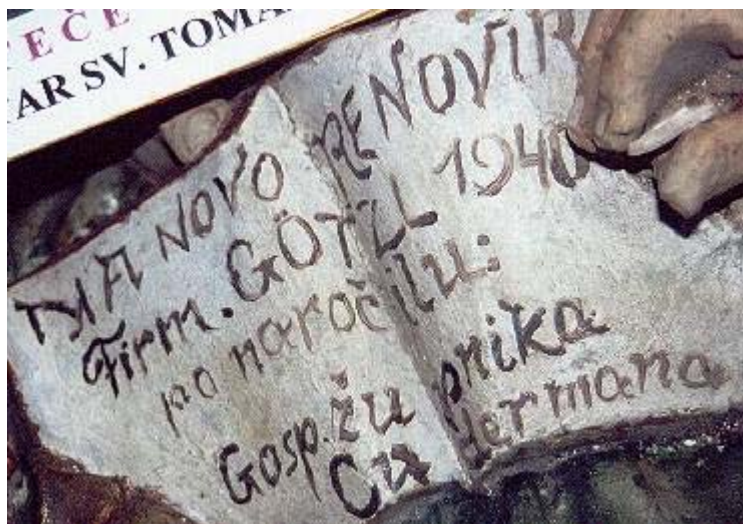 EČE
AR SV. TOMA
NOVO RENOVIR
Firm. GÖTZL 1940
po naročilu:
Gosp. župnika